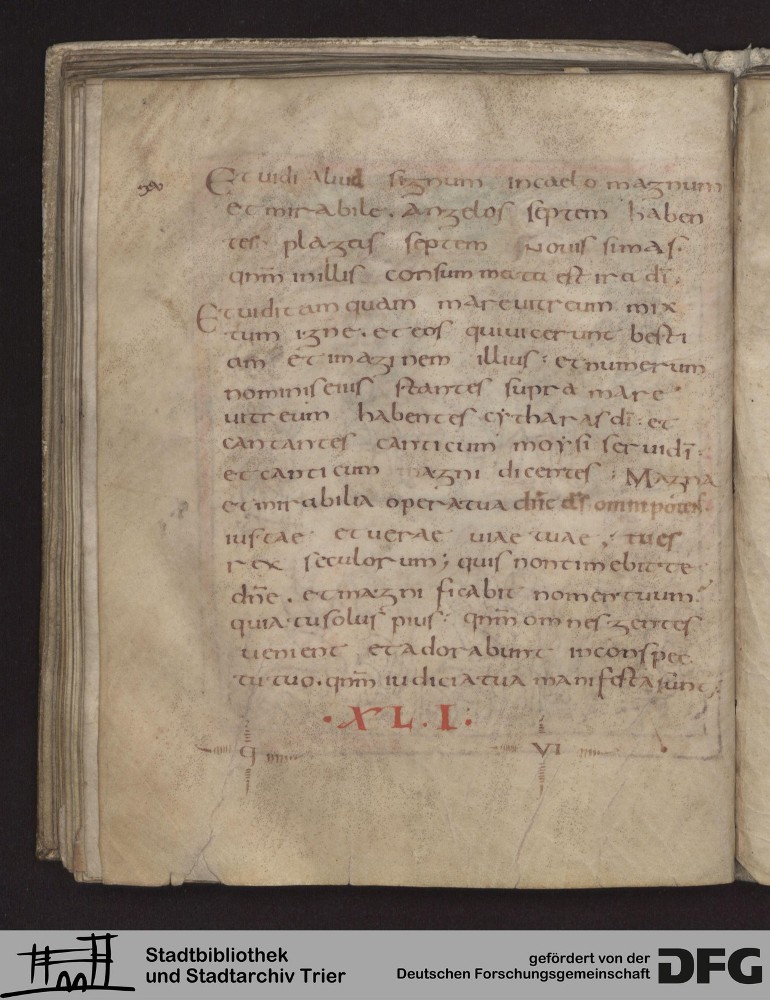 Et uidi aliud signum in caelo magnum
et mirabile. angelos septem haben
tes plagas septem Nouissimas.
qnm̄ in illis consummata est ira dī.
Et uidi tamquam mare uitreum mix
tum igne. et eos qui uicerunt besti
am et imaginem illius : et numerum
nominis eius stantes supra mare
uitreum habentes cytharas dī : et
cantantes canticum moysi serui dī :
et canticum agni dicentes : Magna
et mirabilia opera tua dn̄e ds̄ omnipotēs.
iustae et uerae uiae tuae, tu es
rex seculorum; quis non timebit te
dn̄e. et magnificabit nomen tuum.
quia tu solus pius : qnm̄ omnes gentes
uenient et adorabunt in conspec
tu tuo. qnm̄ iudicia tua manifesta sunt;
.XL.I:
q VI
Stadtbibliothek
und Stadtarchiv Trier
gefördert von der
Deutschen Forschungsgemeinschaft
DFG